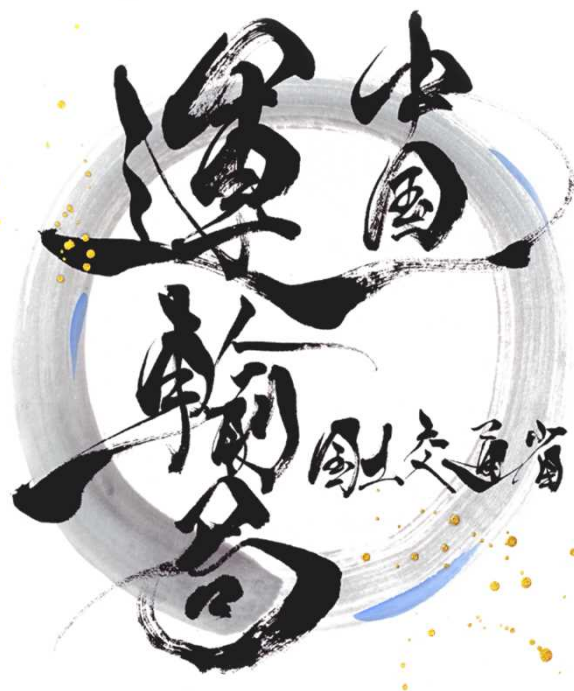 中国
運輸局
国土交通省